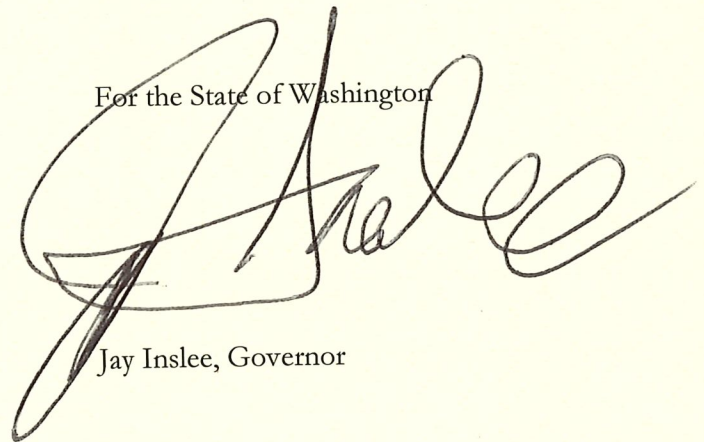 For the State of Washington
Jay Inslee
Jay Inslee, Governor